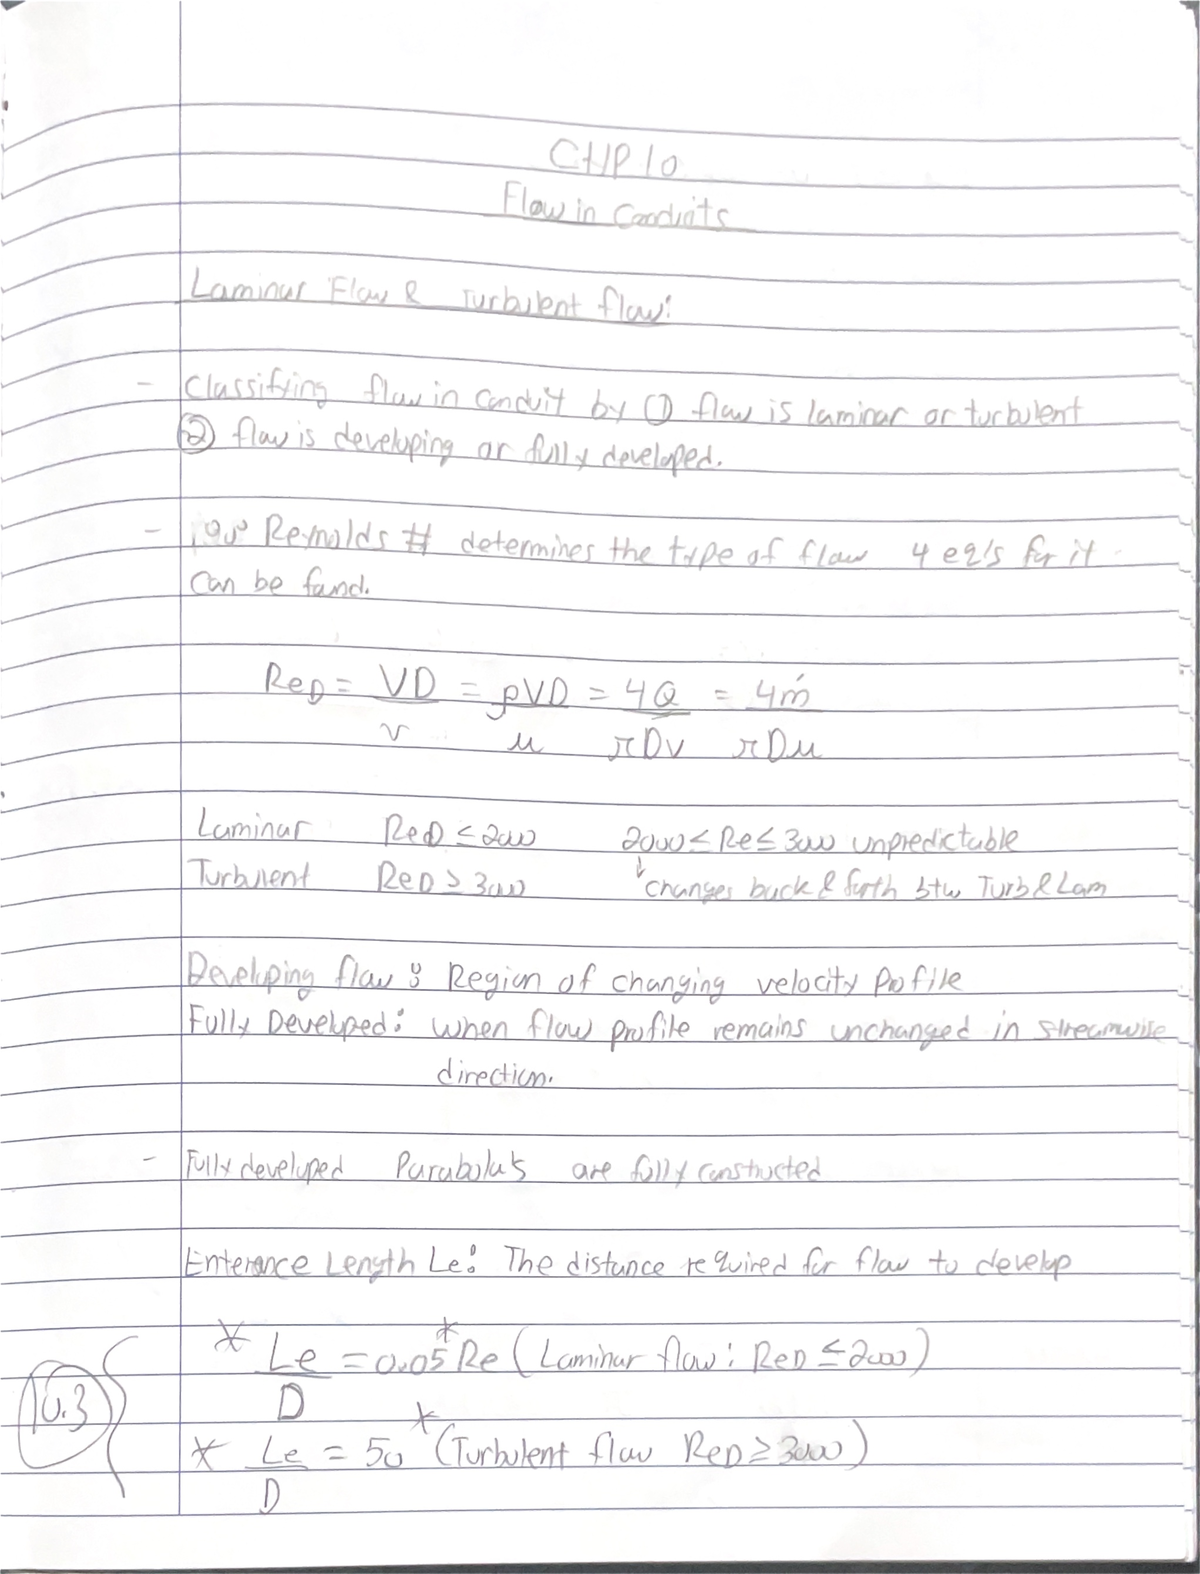 CHP 10
Flow in Conduits
Laminar Flow & Turbulent flow:
- Classifying flow in conduit by ① flow is laminar or turbulent
② flow is developing or fully developed.
- Reynolds # determines the type of flow 4 eq's for it
can be found.
Re_D = VD/ν = ρVD/μ = 4Q/πDν = 4ṁ/πDμ
Laminar Re_D ≤ 2000 2000 ≤ Re ≤ 3000 unpredictable
Turbulent Re_D ≥ 3000 ↓ changes back & forth btw Turb & Lam
Developing flow: Region of changing velocity Profile
Fully Developed: when flow profile remains unchanged in streamwise
direction.
- Fully developed Parabola's are fully constructed
Enterance Length Le: The distance required for flow to develop
* Le/D = 0.05* Re (Laminar flow: Re_D ≤ 2000)
10.3
* Le/D = 50* (Turbulent flow Re_D ≥ 3000)